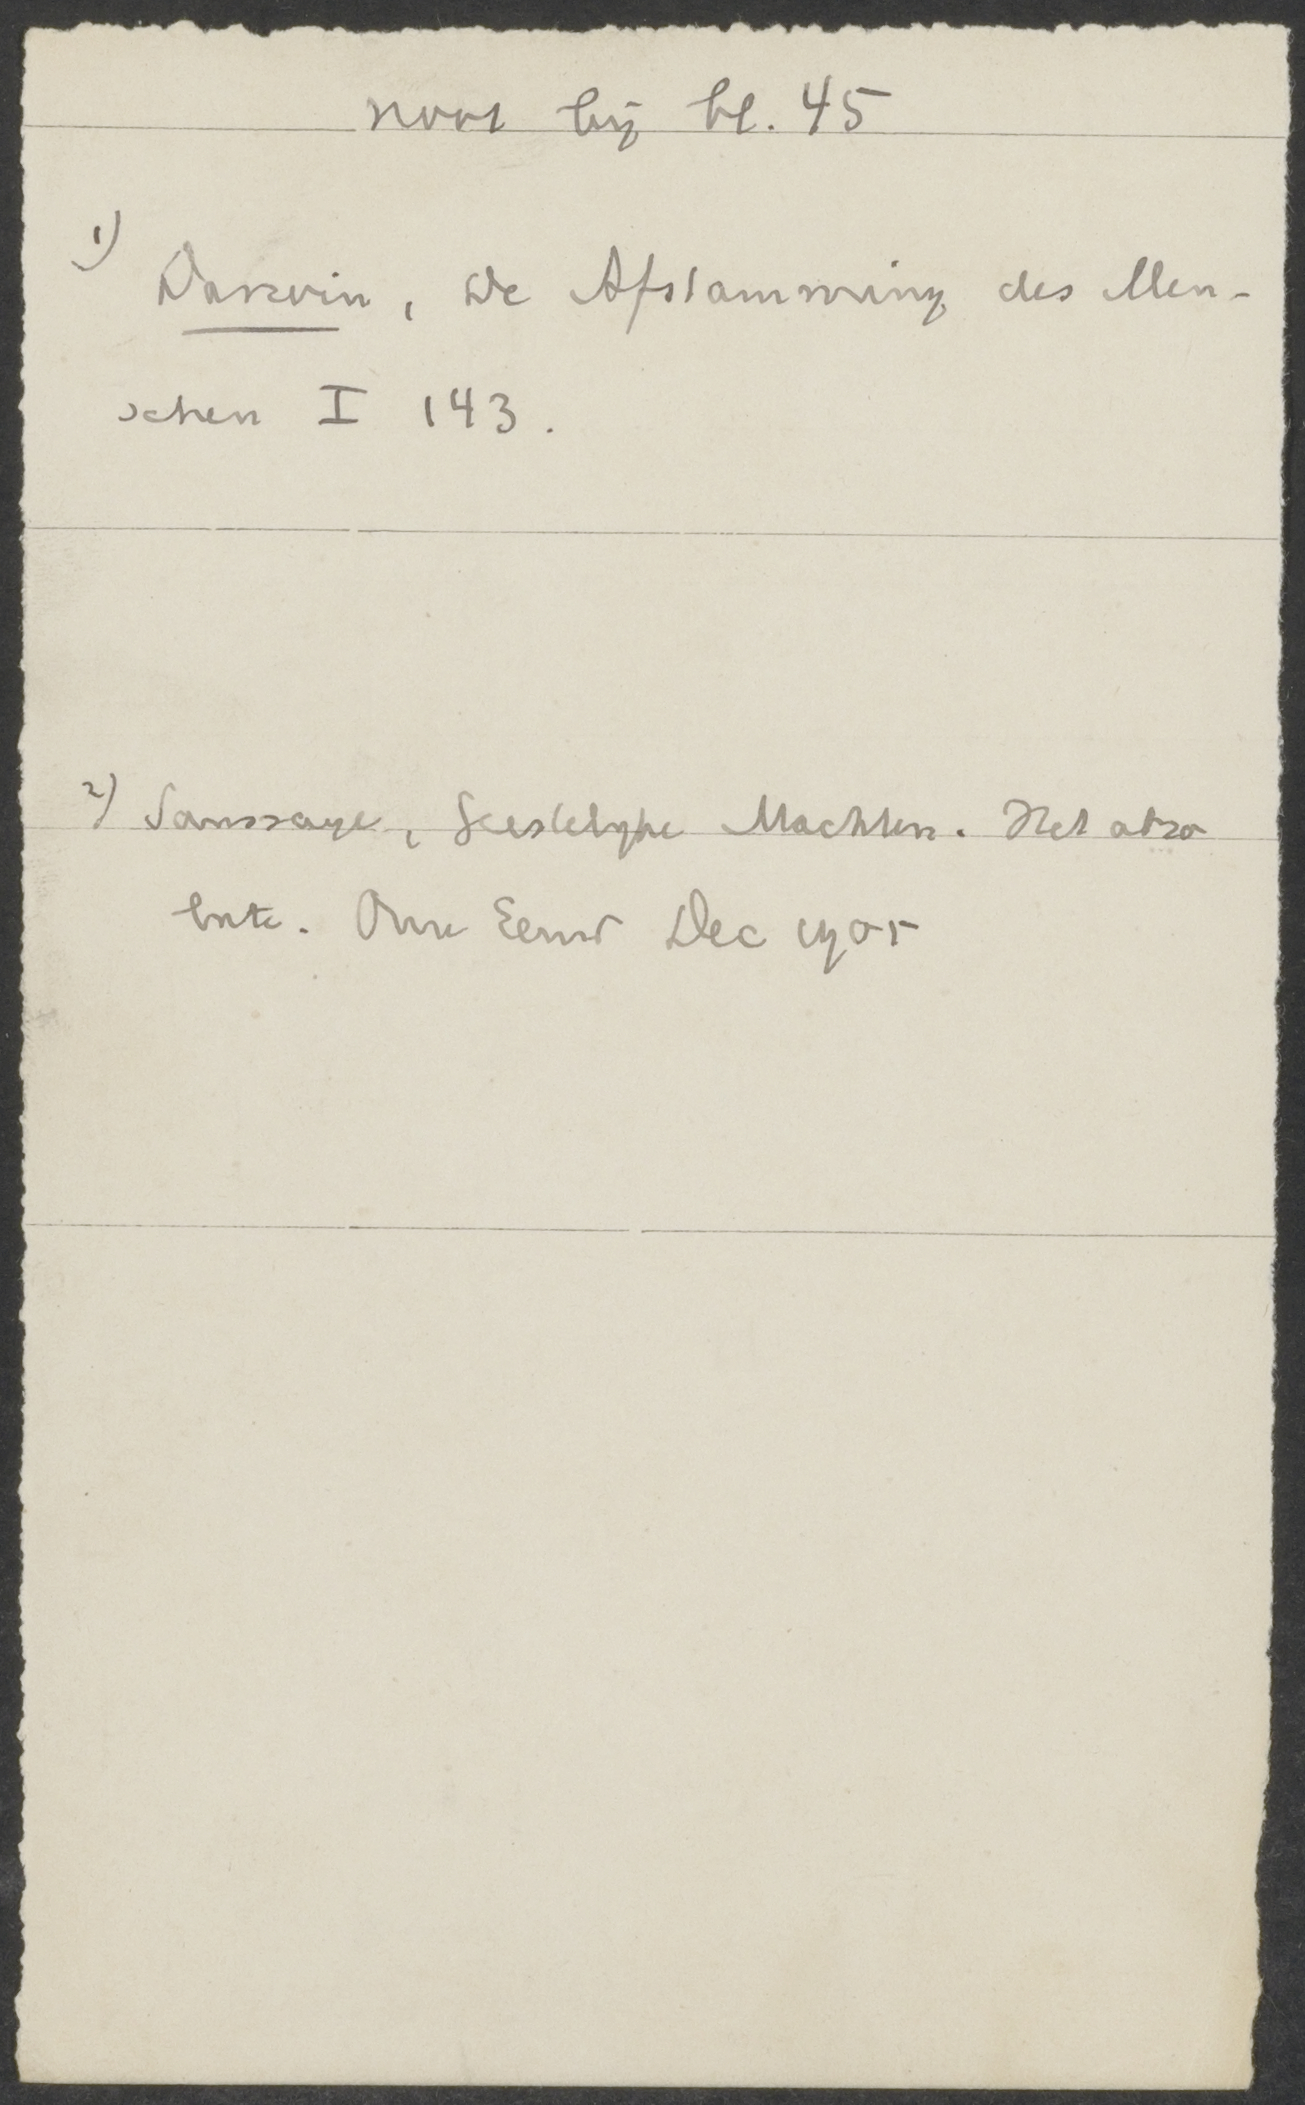 noot bij bl. 45
1) Darwin, De Afstamming des Men-
schen I 143.
2) Saussaye, Geestelijke Machten. Het abso
lute. Onze Eeuw Dec 1905